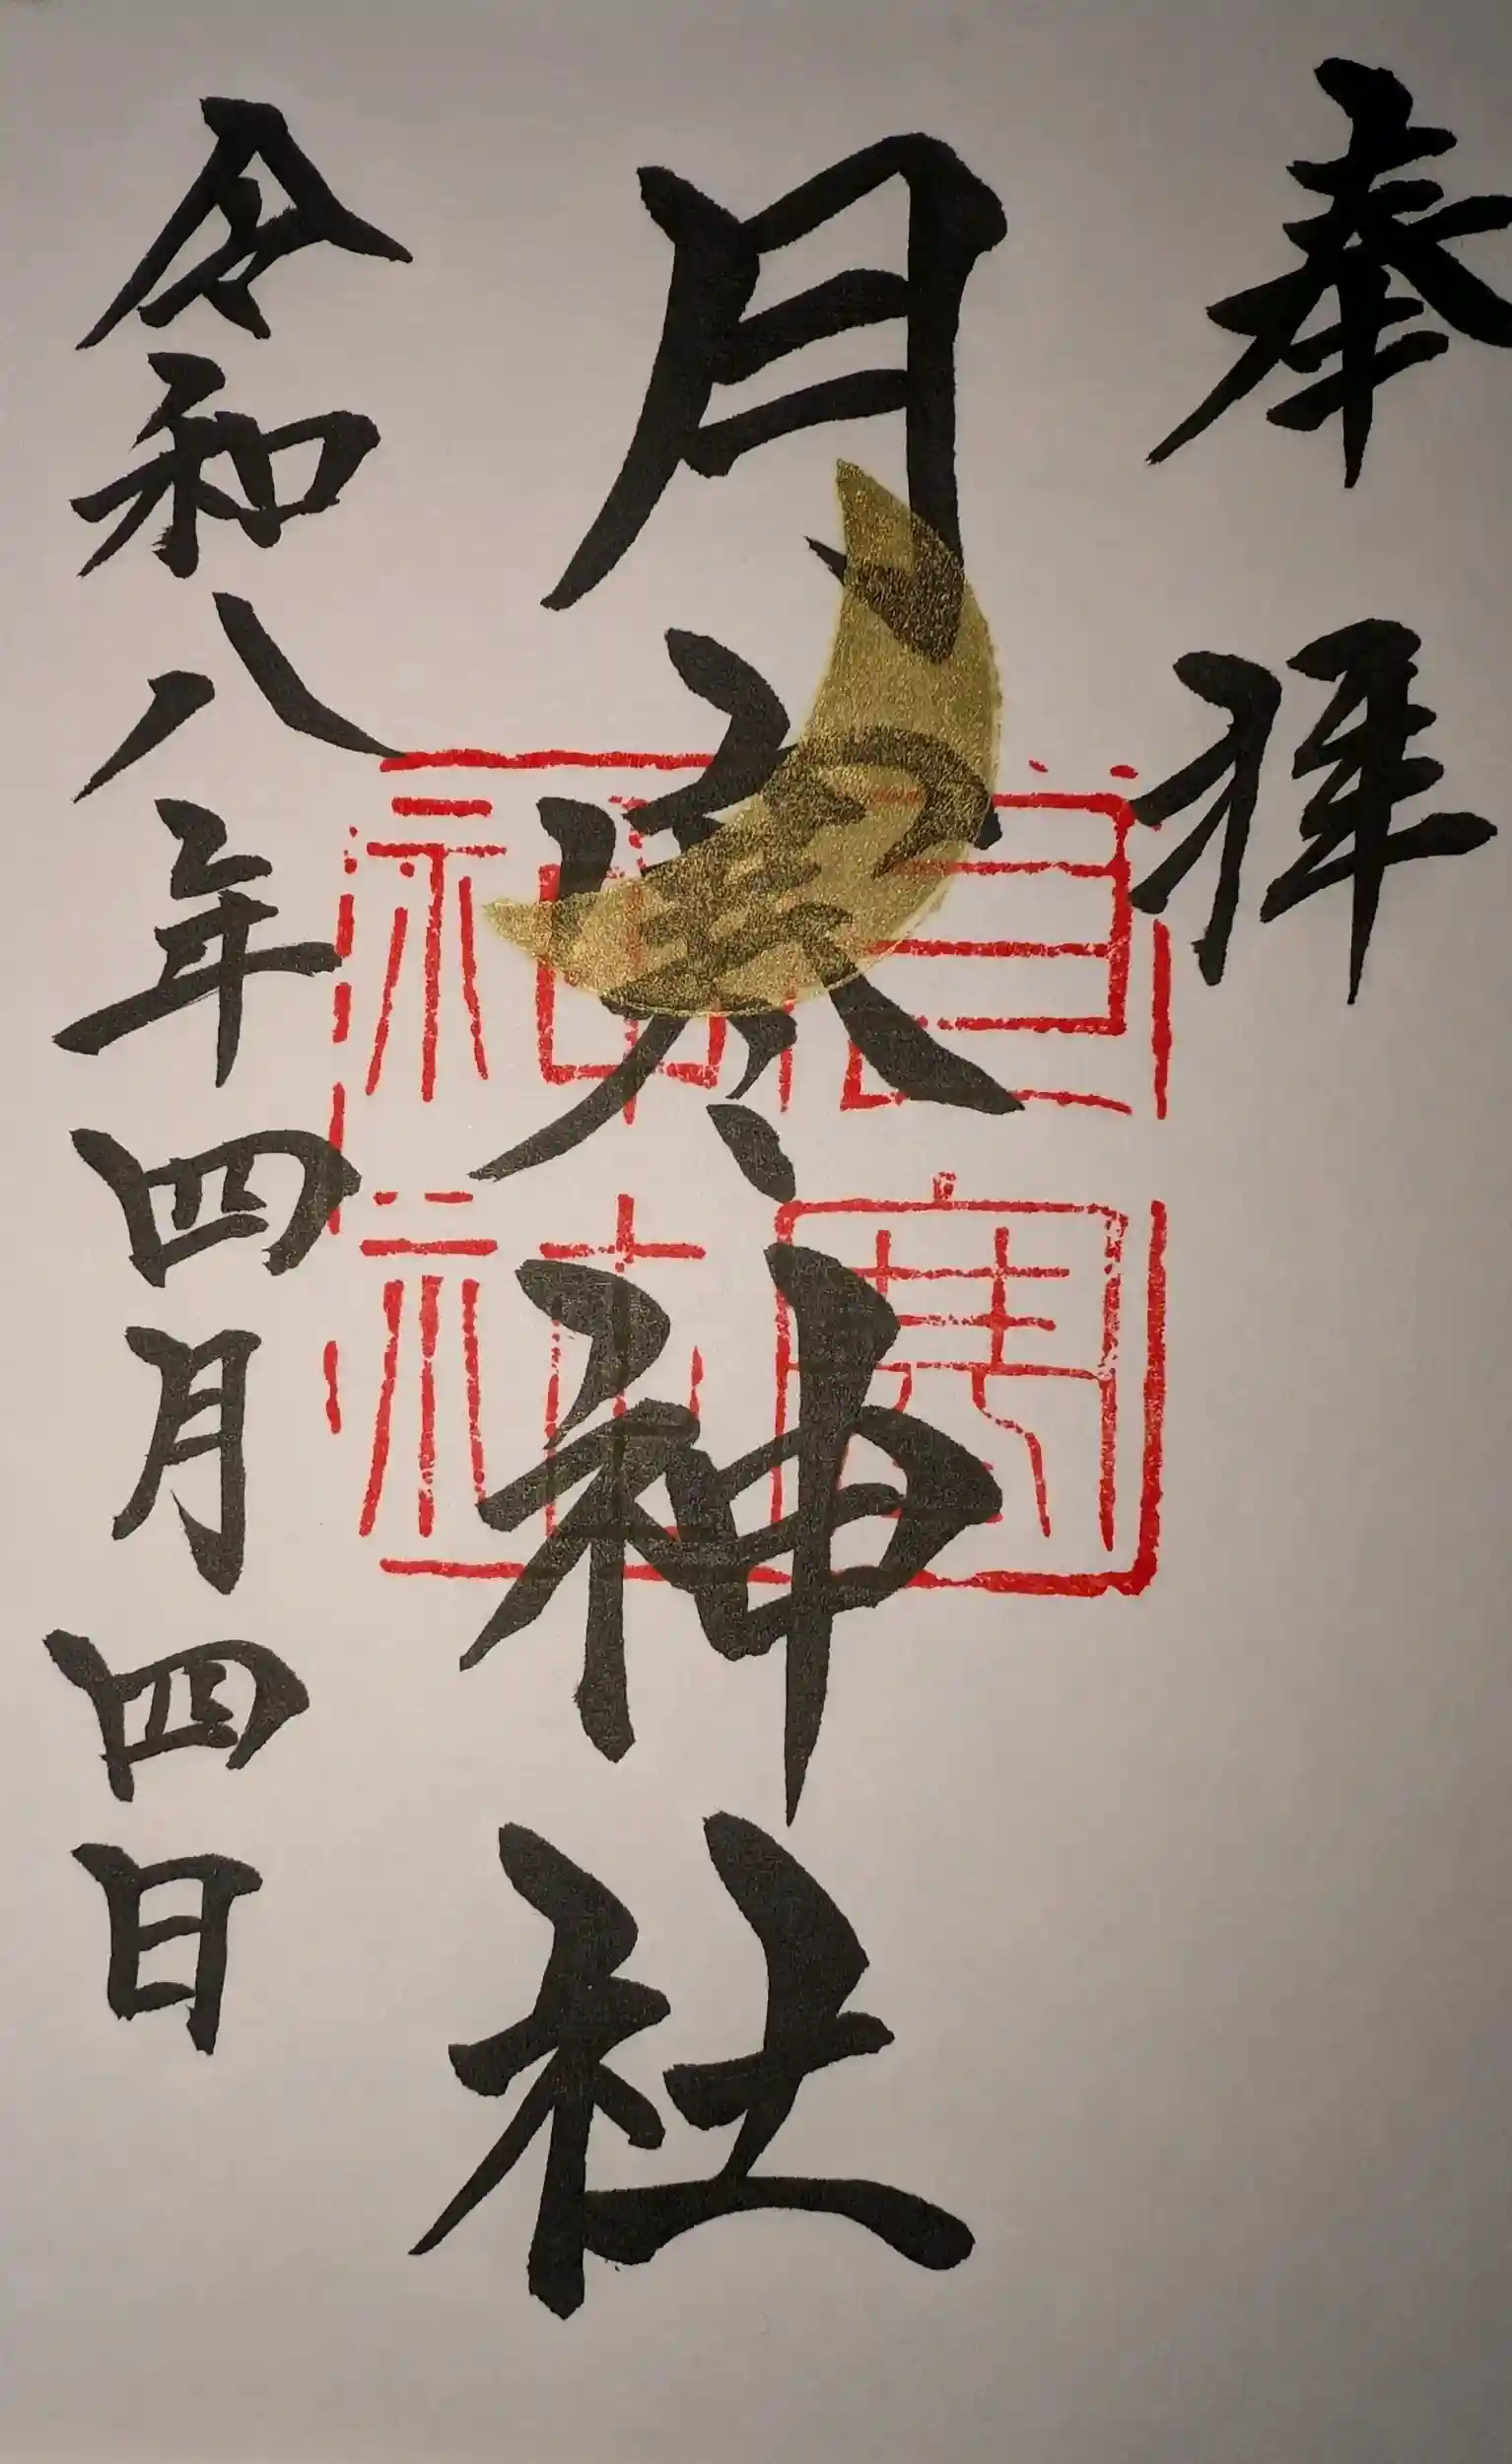 奉拝
月寒神社
令和八年四月四日
月寒神社